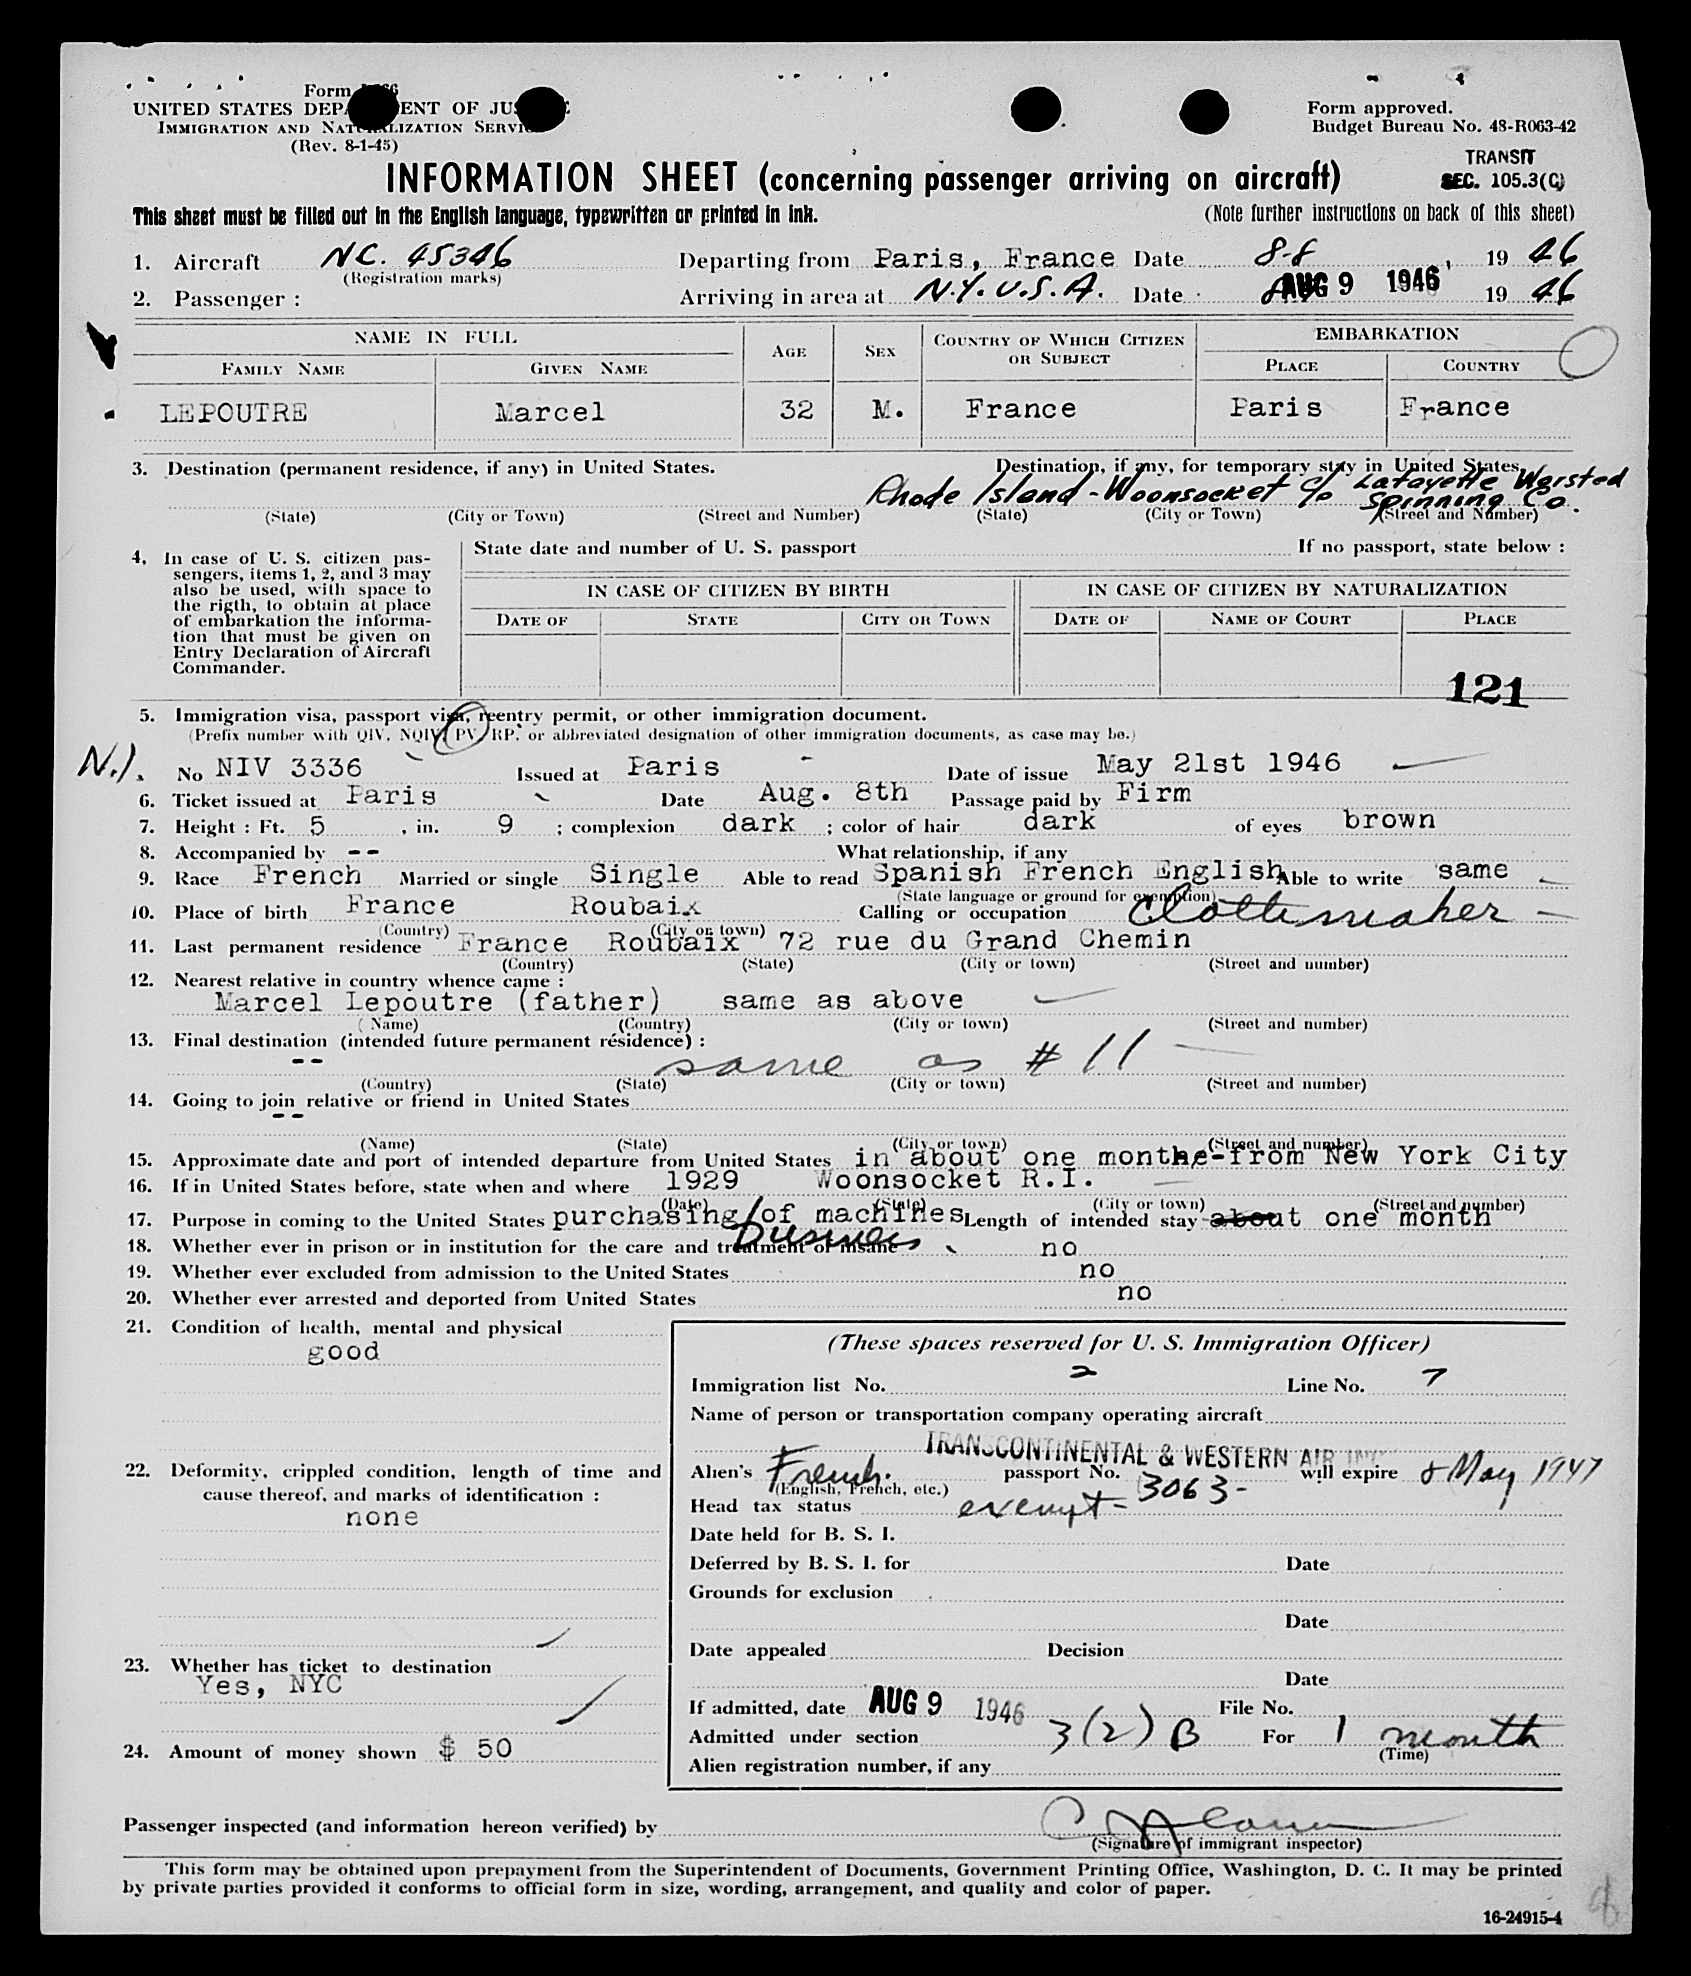 Form
UNITED STATES DEPARTMENT OF JUSTICE
IMMIGRATION AND NATURALIZATION SERVICE
(Rev. 8-1-45)
Form approved.
Budget Bureau No. 43-R063-42
TRANSIT
SEC. 105.3(C)
INFORMATION SHEET (concerning passenger arriving on aircraft)
This sheet must be filled out in the English language, typewritten or printed in ink.
(Note further instructions on back of this sheet)
1. Aircraft NC. 45346 Departing from Paris, France Date 8-8, 19 46
(Registration marks)
2. Passenger : Arriving in area at N.Y. U.S.A. Date AUG 9 1946 19 46
NAME IN FULL AGE SEX COUNTRY OF WHICH CITIZEN OR SUBJECT EMBARKATION
FAMILY NAME GIVEN NAME PLACE COUNTRY
LEPOUTRE Marcel 32 M. France Paris France
3. Destination (permanent residence, if any) in United States. Destination, if any, for temporary stay in United States.
Rhode Island - Woonsocket c/o Lafayette Worsted Spinning Co.
(State) (City or Town) (Street and Number) (State) (City or Town) (Street and Number)
4. In case of U. S. citizen pas-
sengers, items 1, 2, and 3 may
also be used, with space to
the rigth, to obtain at place
of embarkation the informa-
tion that must be given on
Entry Declaration of Aircraft
Commander.
State date and number of U. S. passport If no passport, state below :
IN CASE OF CITIZEN BY BIRTH IN CASE OF CITIZEN BY NATURALIZATION
DATE OF STATE CITY OR TOWN DATE OF NAME OF COURT PLACE
121
5. Immigration visa, passport visa, reentry permit, or other immigration document.
(Prefix number with QIV, NQIV, PV, RP, or abbreviated designation of other immigration documents, as case may be.)
N.I. No NIV 3336 Issued at Paris Date of issue May 21st 1946
6. Ticket issued at Paris Date Aug. 8th Passage paid by Firm
7. Height : Ft. 5, in. 9 ; complexion dark ; color of hair dark of eyes brown
8. Accompanied by -- What relationship, if any
9. Race French Married or single Single Able to read Spanish French English Able to write same
(State language or ground for exemption)
10. Place of birth France Roubaix Calling or occupation Clothmaker
(Country) (City or town)
11. Last permanent residence France Roubaix 72 rue du Grand Chemin
(Country) (State) (City or town) (Street and number)
12. Nearest relative in country whence came :
Marcel Lepoutre (father) same as above
(Name) (Country) (City or town) (Street and number)
13. Final destination (intended future permanent résidence) :
-- same as # 11
(Country) (State) (City or town) (Street and number)
14. Going to join relative or friend in United States
--
(Name) (State) (City or town) (Street and number)
15. Approximate date and port of intended departure from United States in about one month from New York City
16. If in United States before, state when and where 1929 Woonsocket R.I.
(Date) (State) (City or town) (Street and number)
17. Purpose in coming to the United States purchasing/of machines Length of intended stay about one month
Business
18. Whether ever in prison or in institution for the care and treatment of insane no
19. Whether ever excluded from admission to the United States no
20. Whether ever arrested and deported from United States no
21. Condition of health, mental and physical
good
22. Deformity, crippled condition, length of time and
cause thereof, and marks of identification :
none
23. Whether has ticket to destination
Yes, NYC
24. Amount of money shown $ 50
(These spaces reserved for U. S. Immigration Officer)
Immigration list No. 2 Line No. 7
Name of person or transportation company operating aircraft
TRANSCONTINENTAL & WESTERN AIR INC
Alien's French passport No. 3063- will expire 8 May 1947
(English, French, etc.)
Head tax status exempt-
Date held for B. S. I.
Deferred by B. S. I. for Date
Grounds for exclusion
Date
Date appealed Decision
Date
If admitted, date AUG 9 1946 File No.
Admitted under section 3(2) B For 1 month
(Time)
Alien registration number, if any
Passenger inspected (and information hereon verified) by
(Signature of immigrant inspector)
This form may be obtained upon prepayment from the Superintendent of Documents, Government Printing Office, Washington, D. C. It may be printed
by private parties provided it conforms to official form in size, wording, arrangement, and quality and color of paper.
16-24915-4